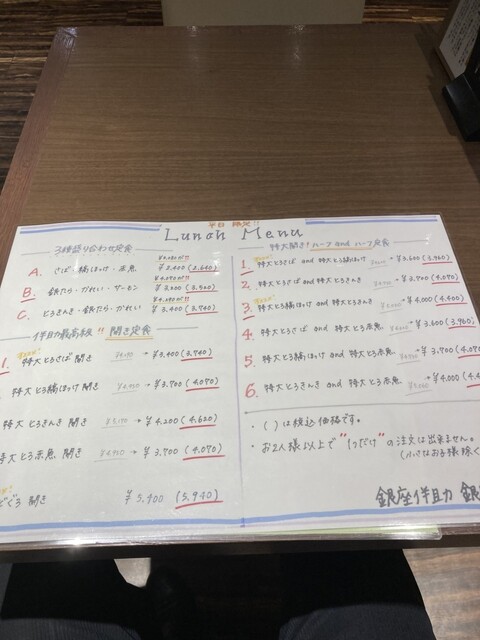 平日 限定!!
Lunch Menu
3種盛り合わせ定食
A. さば・縞ほっけ・赤魚 ¥2,400 (2,640)
B. 銀だら・かれい・サーモン
C. とろきんき・銀だら・かれい ¥3,400 (3,740)
伴助の最高級!! 開き定食
1. 特大とろさば 開き → ¥3,400 (3,740)
特大とろ縞ほっけ 開き → ¥3,700 (4,070)
特大 とろきんき 開き → ¥4,200 (4,620)
特大とろ赤魚 開き → ¥3,700 (4,070)
どぐろ 開き ¥5,400 (5,940)
特大開き! ハーフ and ハーフ定食
1. 特大とろさば and 特大とろ縞ほっけ → ¥3,600 (3,960)
2. 特大とろさば and 特大とろきんき → ¥3,700 (4,070)
3. 特大とろ縞ほっけ and 特大とろきんき → ¥4,000 (4,400)
4. 特大とろさば and 特大とろ赤魚 → ¥3,600 (3,960)
5. 特大とろ縞ほっけ and 特大とろ赤魚 → ¥3,700 (4,07
6. 特大とろきんき and 特大とろ赤魚 → ¥4,000 (4,4
・( )は税込価格です。
・お2人様以上で "1つだけ" の注文は出来ません。
(小さなお子様除く
銀座伴助 銀